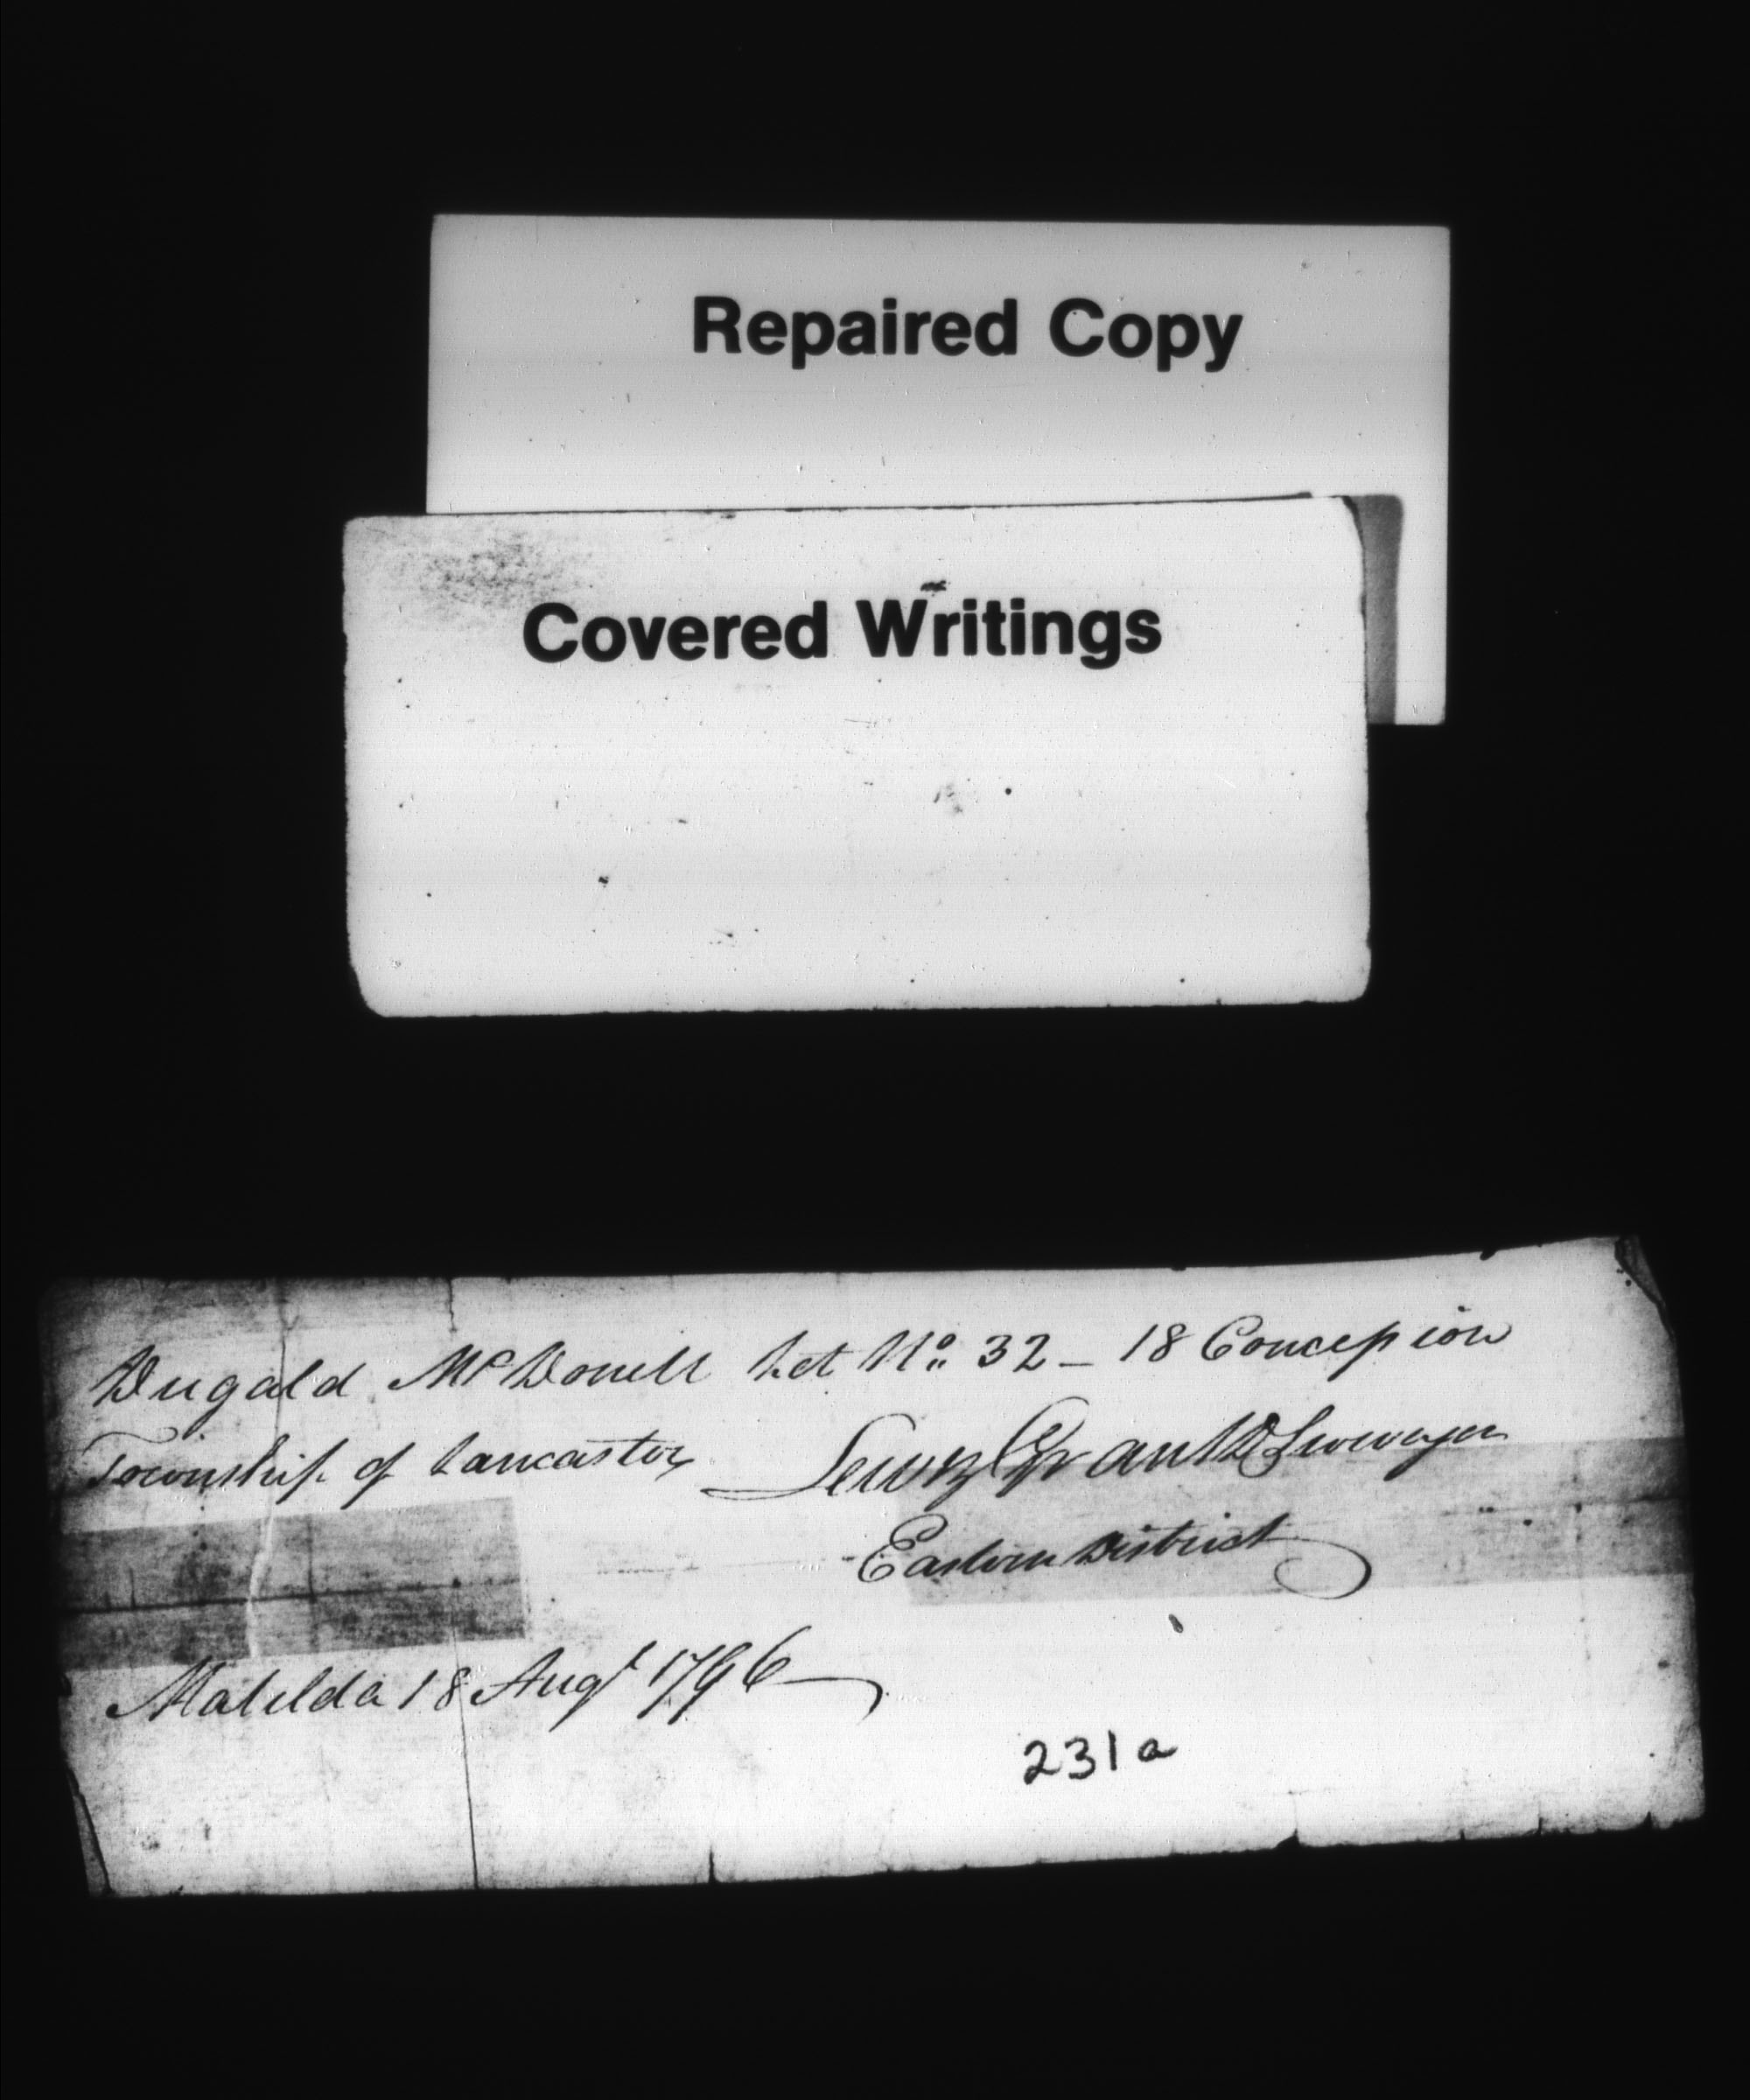 Repaired Copy
Covered Writings
Dugald McDonell Lot No. 32 – 18 Concepion
Township of Lancaster
Lewis Grant D Surveyor
Eastern District
Matilda 18 Augt 1796
231a